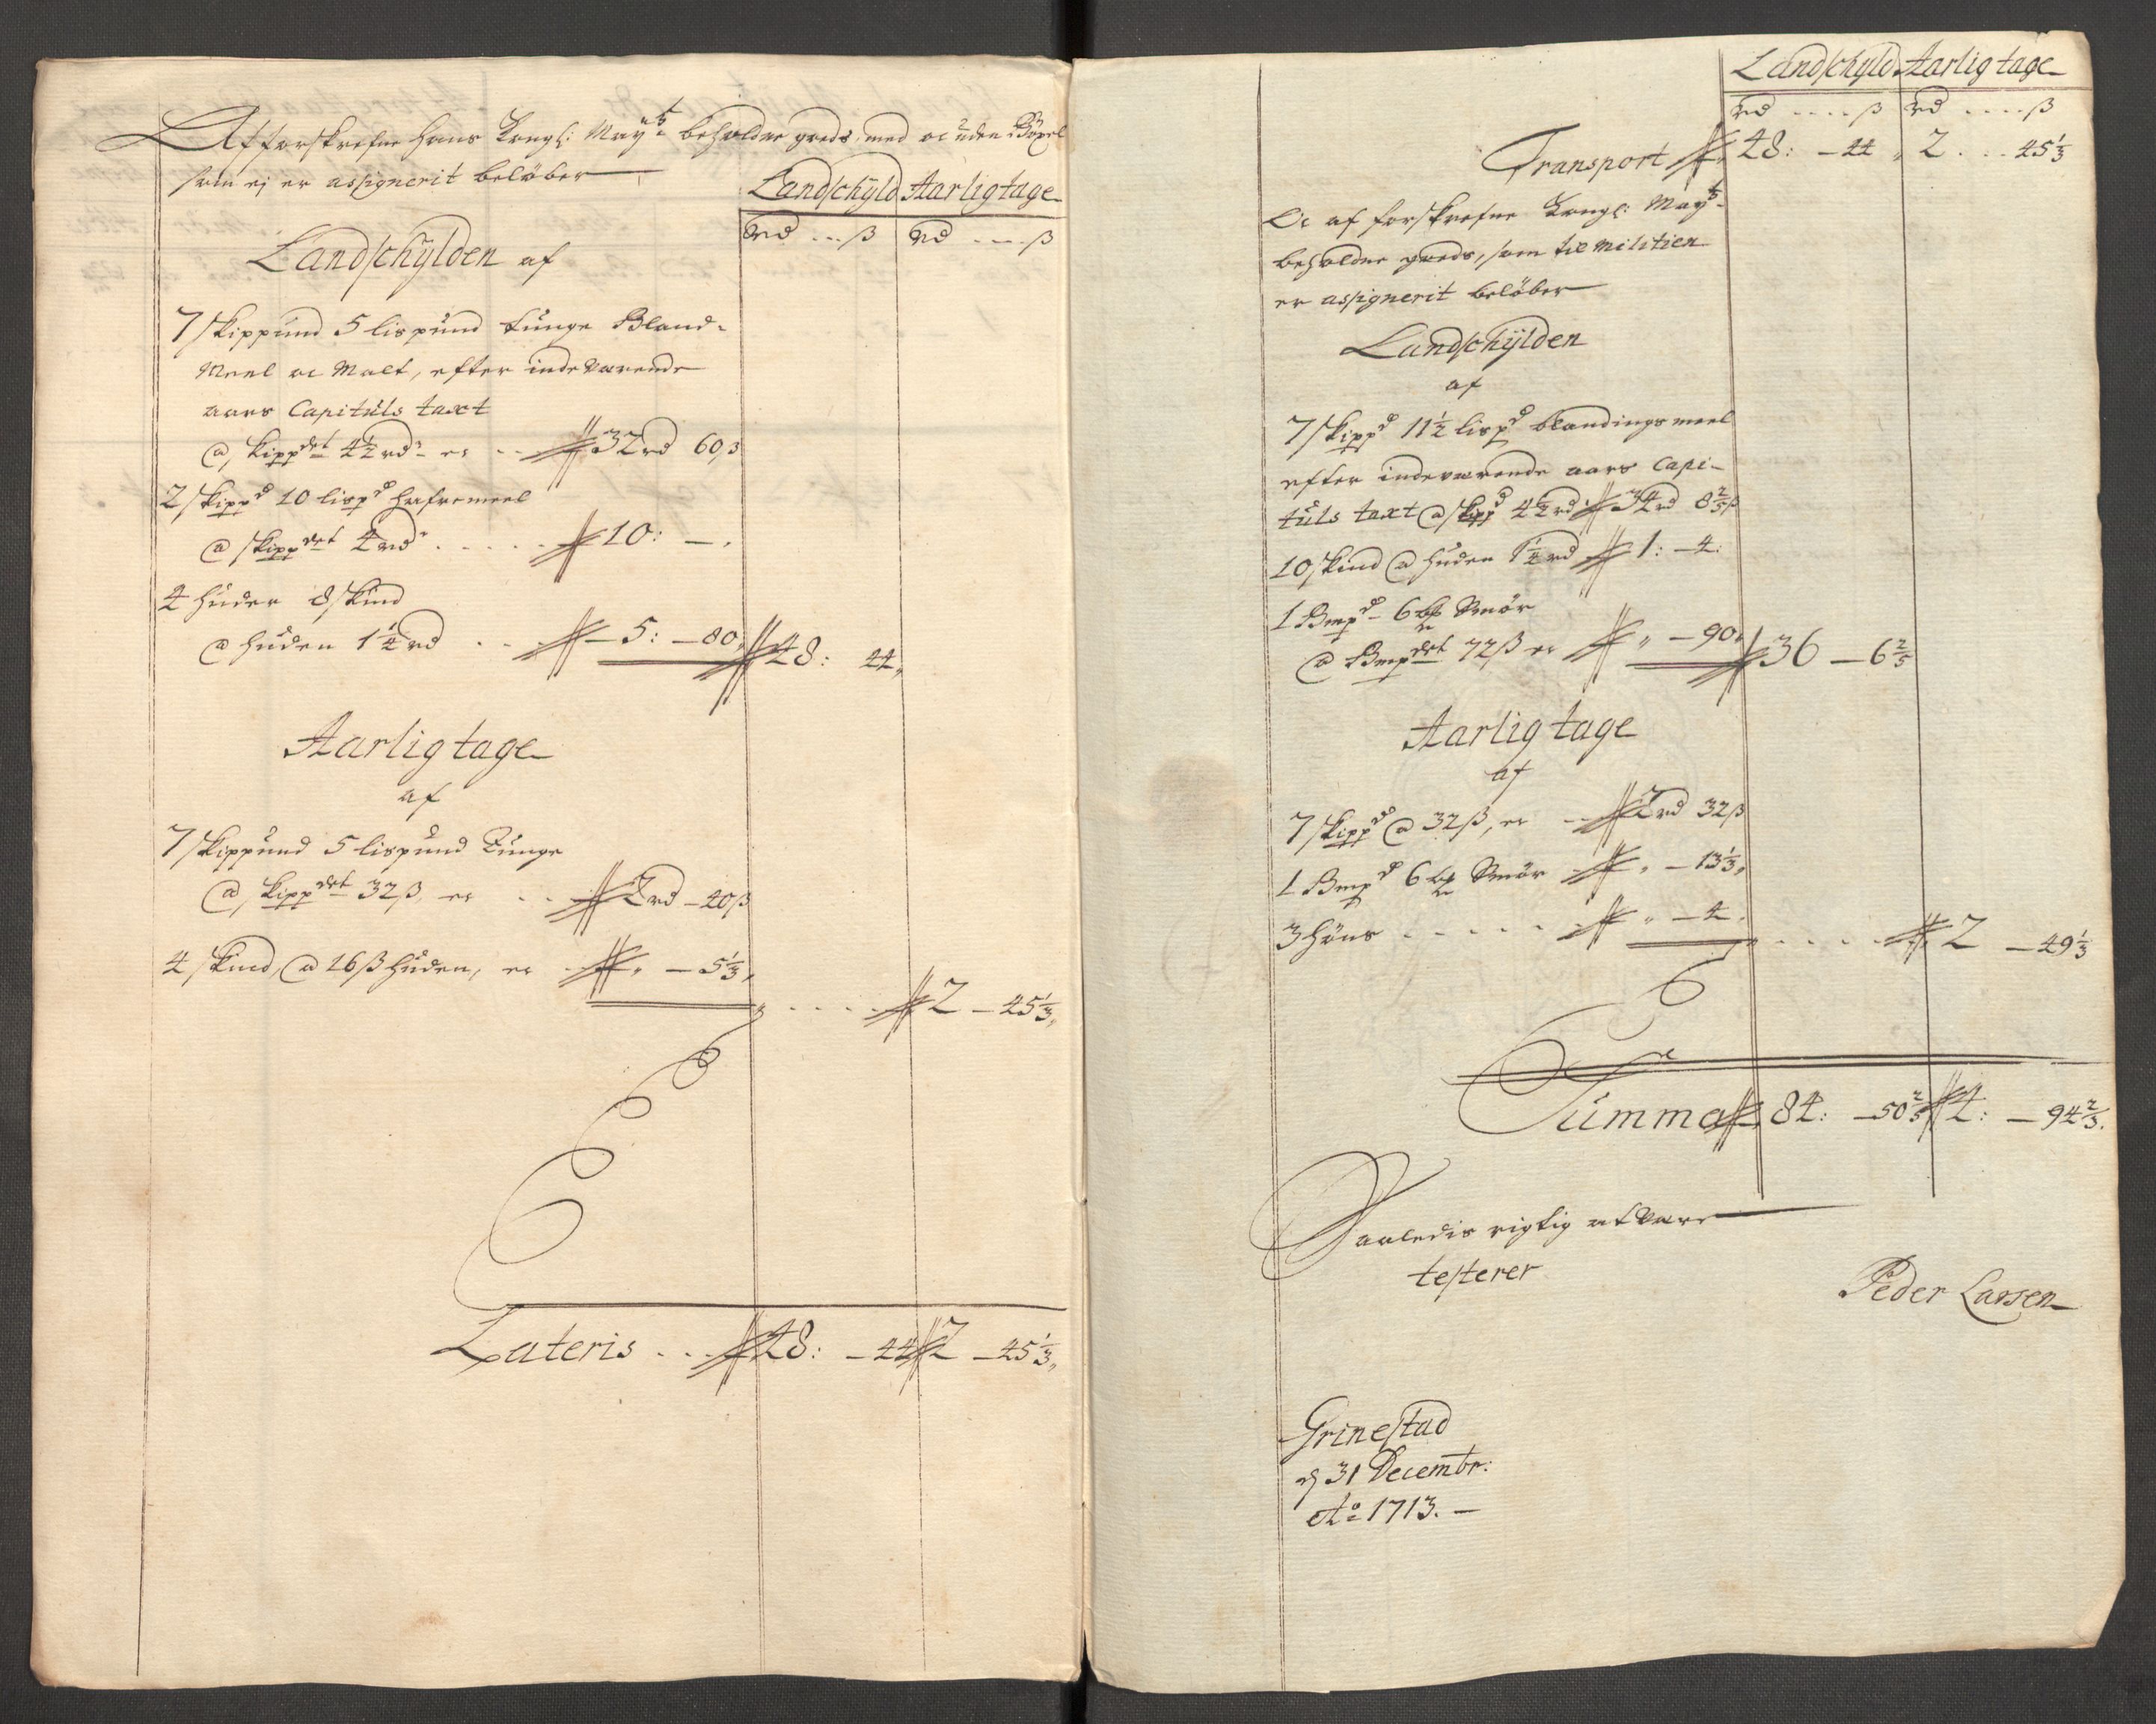 Af forskrefne Hans Kongl: May:ts beholdne gods, med oc uden Böxel
som ej er assignerit beløber
Landschyld Aarlig tage
Rd ... ß Rd .... ß
Landschylden af
7 Skippund 5 lispund tunge Bland-
Meel oc Malt, efter indeværende
aars Capituls taxt
@ skippdet 4½ rdr er .. 32 rd 60 ß
2 Skippd 10 lispd hafremeel
@ skippdet 4 rdr ..... 10: — „
4 huder 8 skind
@ huden 1¼ rd .. 5: — 80 „ 48: 44 „
Aarlig tage
af
7 Skippund 5 lispund Tunge
@ skippdet 32 ß, er .. 2 rd — 40 ß
4 skind, @ 16 ß huden, er „ — 5⅓ „
.... 2 — 45⅓ „
Lateris ... 48: — 44 2 — 45⅓ „
Landschyld Aarlig tage
Rd .... ß Rd .... ß
Transport 48: — 44 „ 2 ... 45⅓
Oc af forskrefne Kongl: May:ts
beholdne gods, som til Militien
er assignerit beløber
Landschylden
af
7 skippd 11½ lispd blandingsmeel
efter indeværende aars Capi-
tuls taxt @ skippd 4½ rd 34 rd 8⅖ ß
10 skind @ huden 1¼ rd 1: — 4:
1 Bmpd 6 Smør
@ Bmpdet 72 ß er „ — 90 „ 36 — 6⅖
Aarlig tage
af
7 skippd @ 32 ß, er .. 2 rd 32 ß
1 Bmpd 6 Smør „ — 13⅓ „
3 höns ...... „ — 4 „
.... 2 — 49⅓
Summa 84: — 50⅖ 4: — 94⅔.
Saaledis rigtig at være
testerer
Peder Larsen
Grinestad
d 31 Decembr:
Ao 1713. —